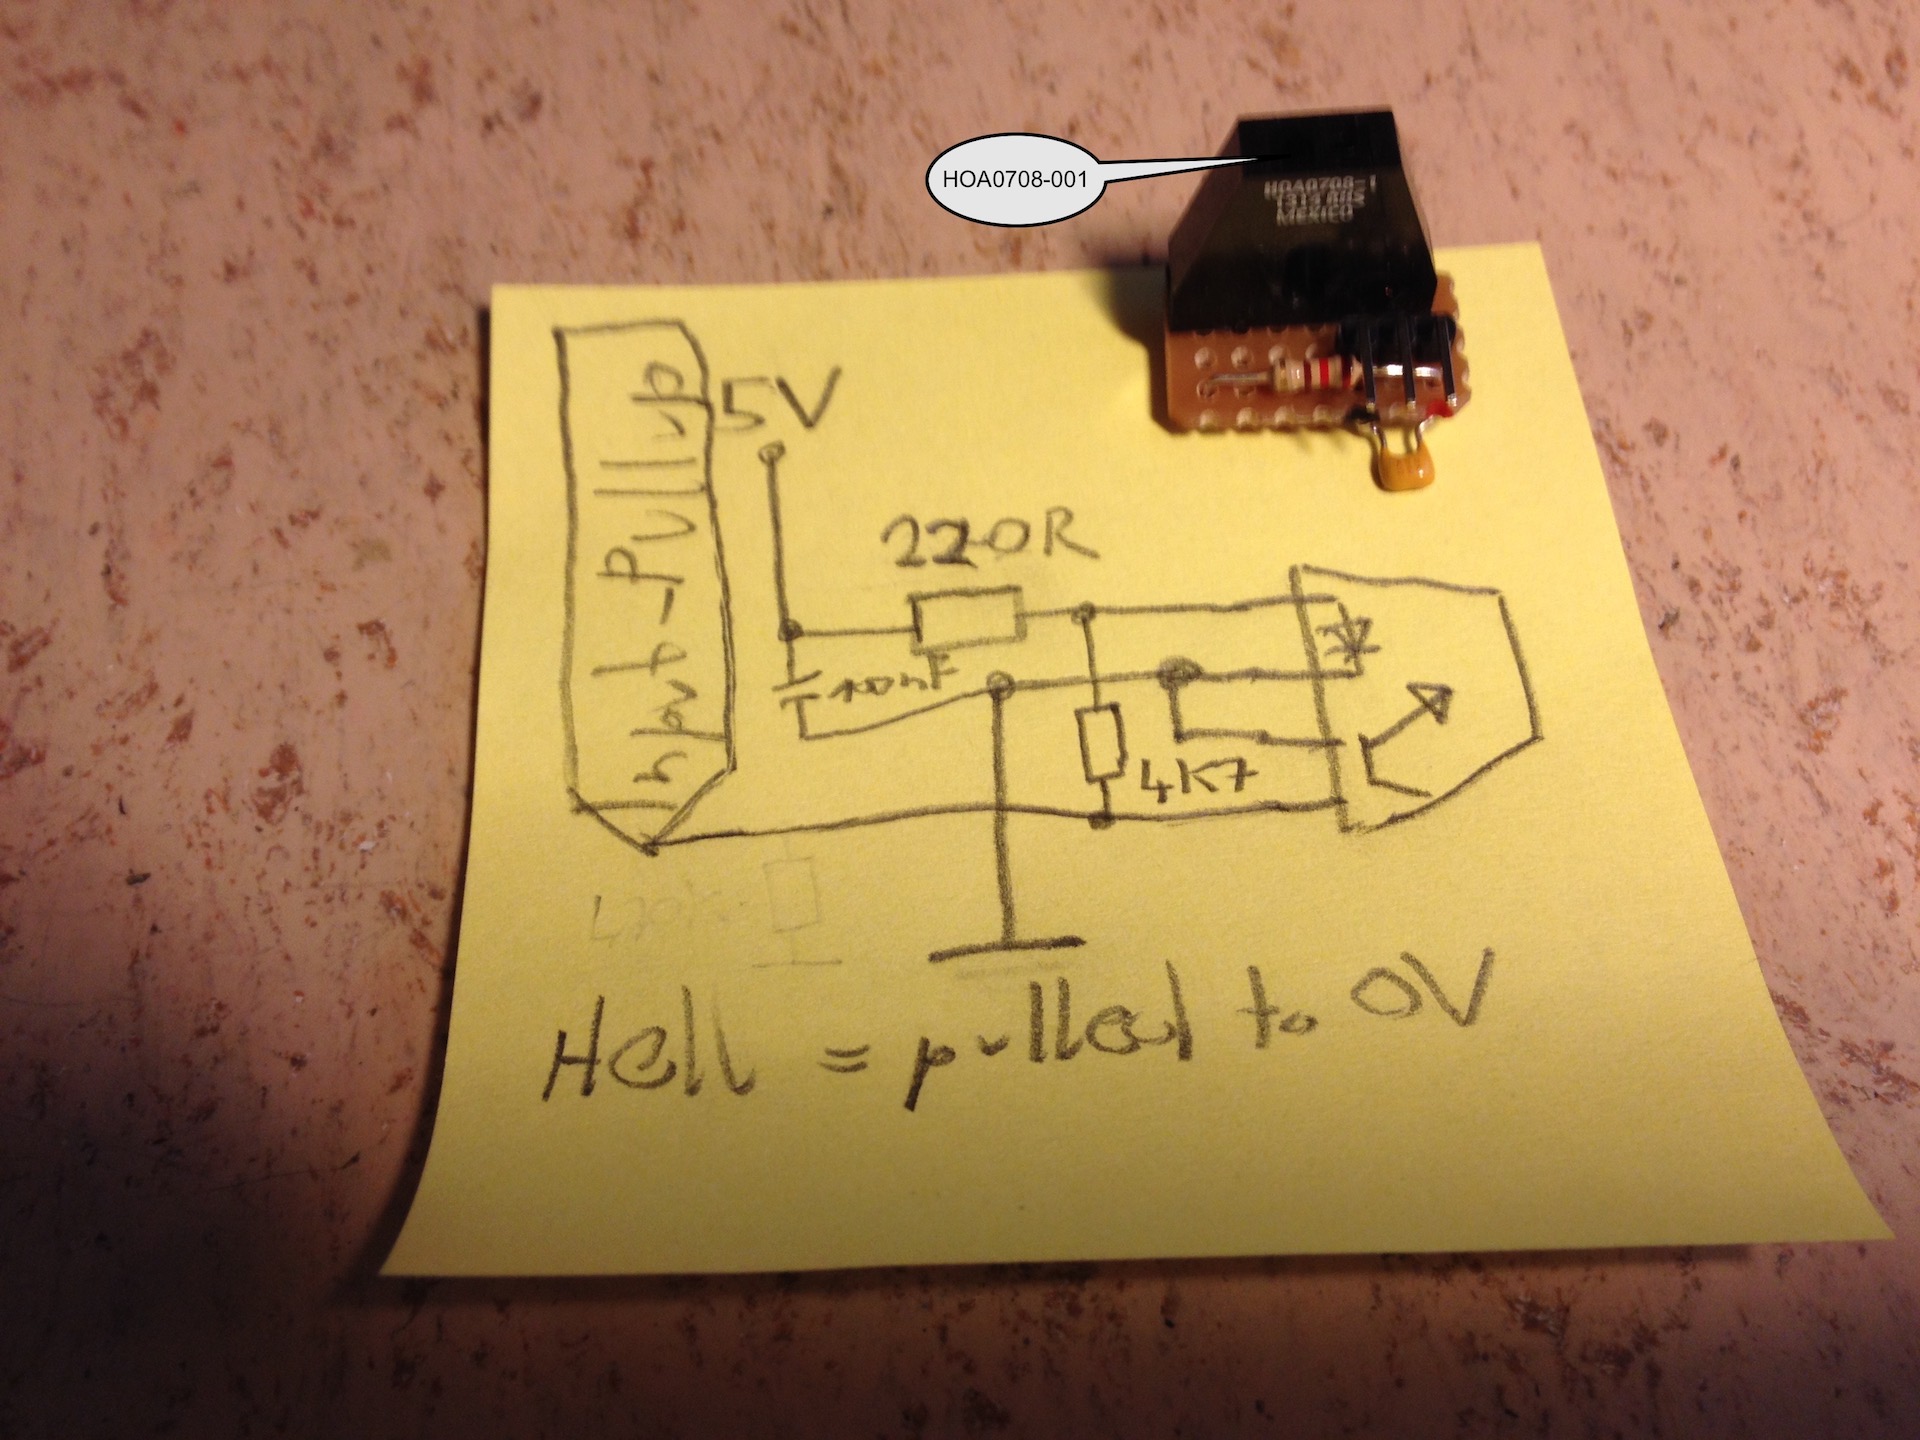 HOA0708-001
HOA0708-1
MEXICO
Input-Pullup
5V
220R
100nF
4K7
Hell = pulled to 0V